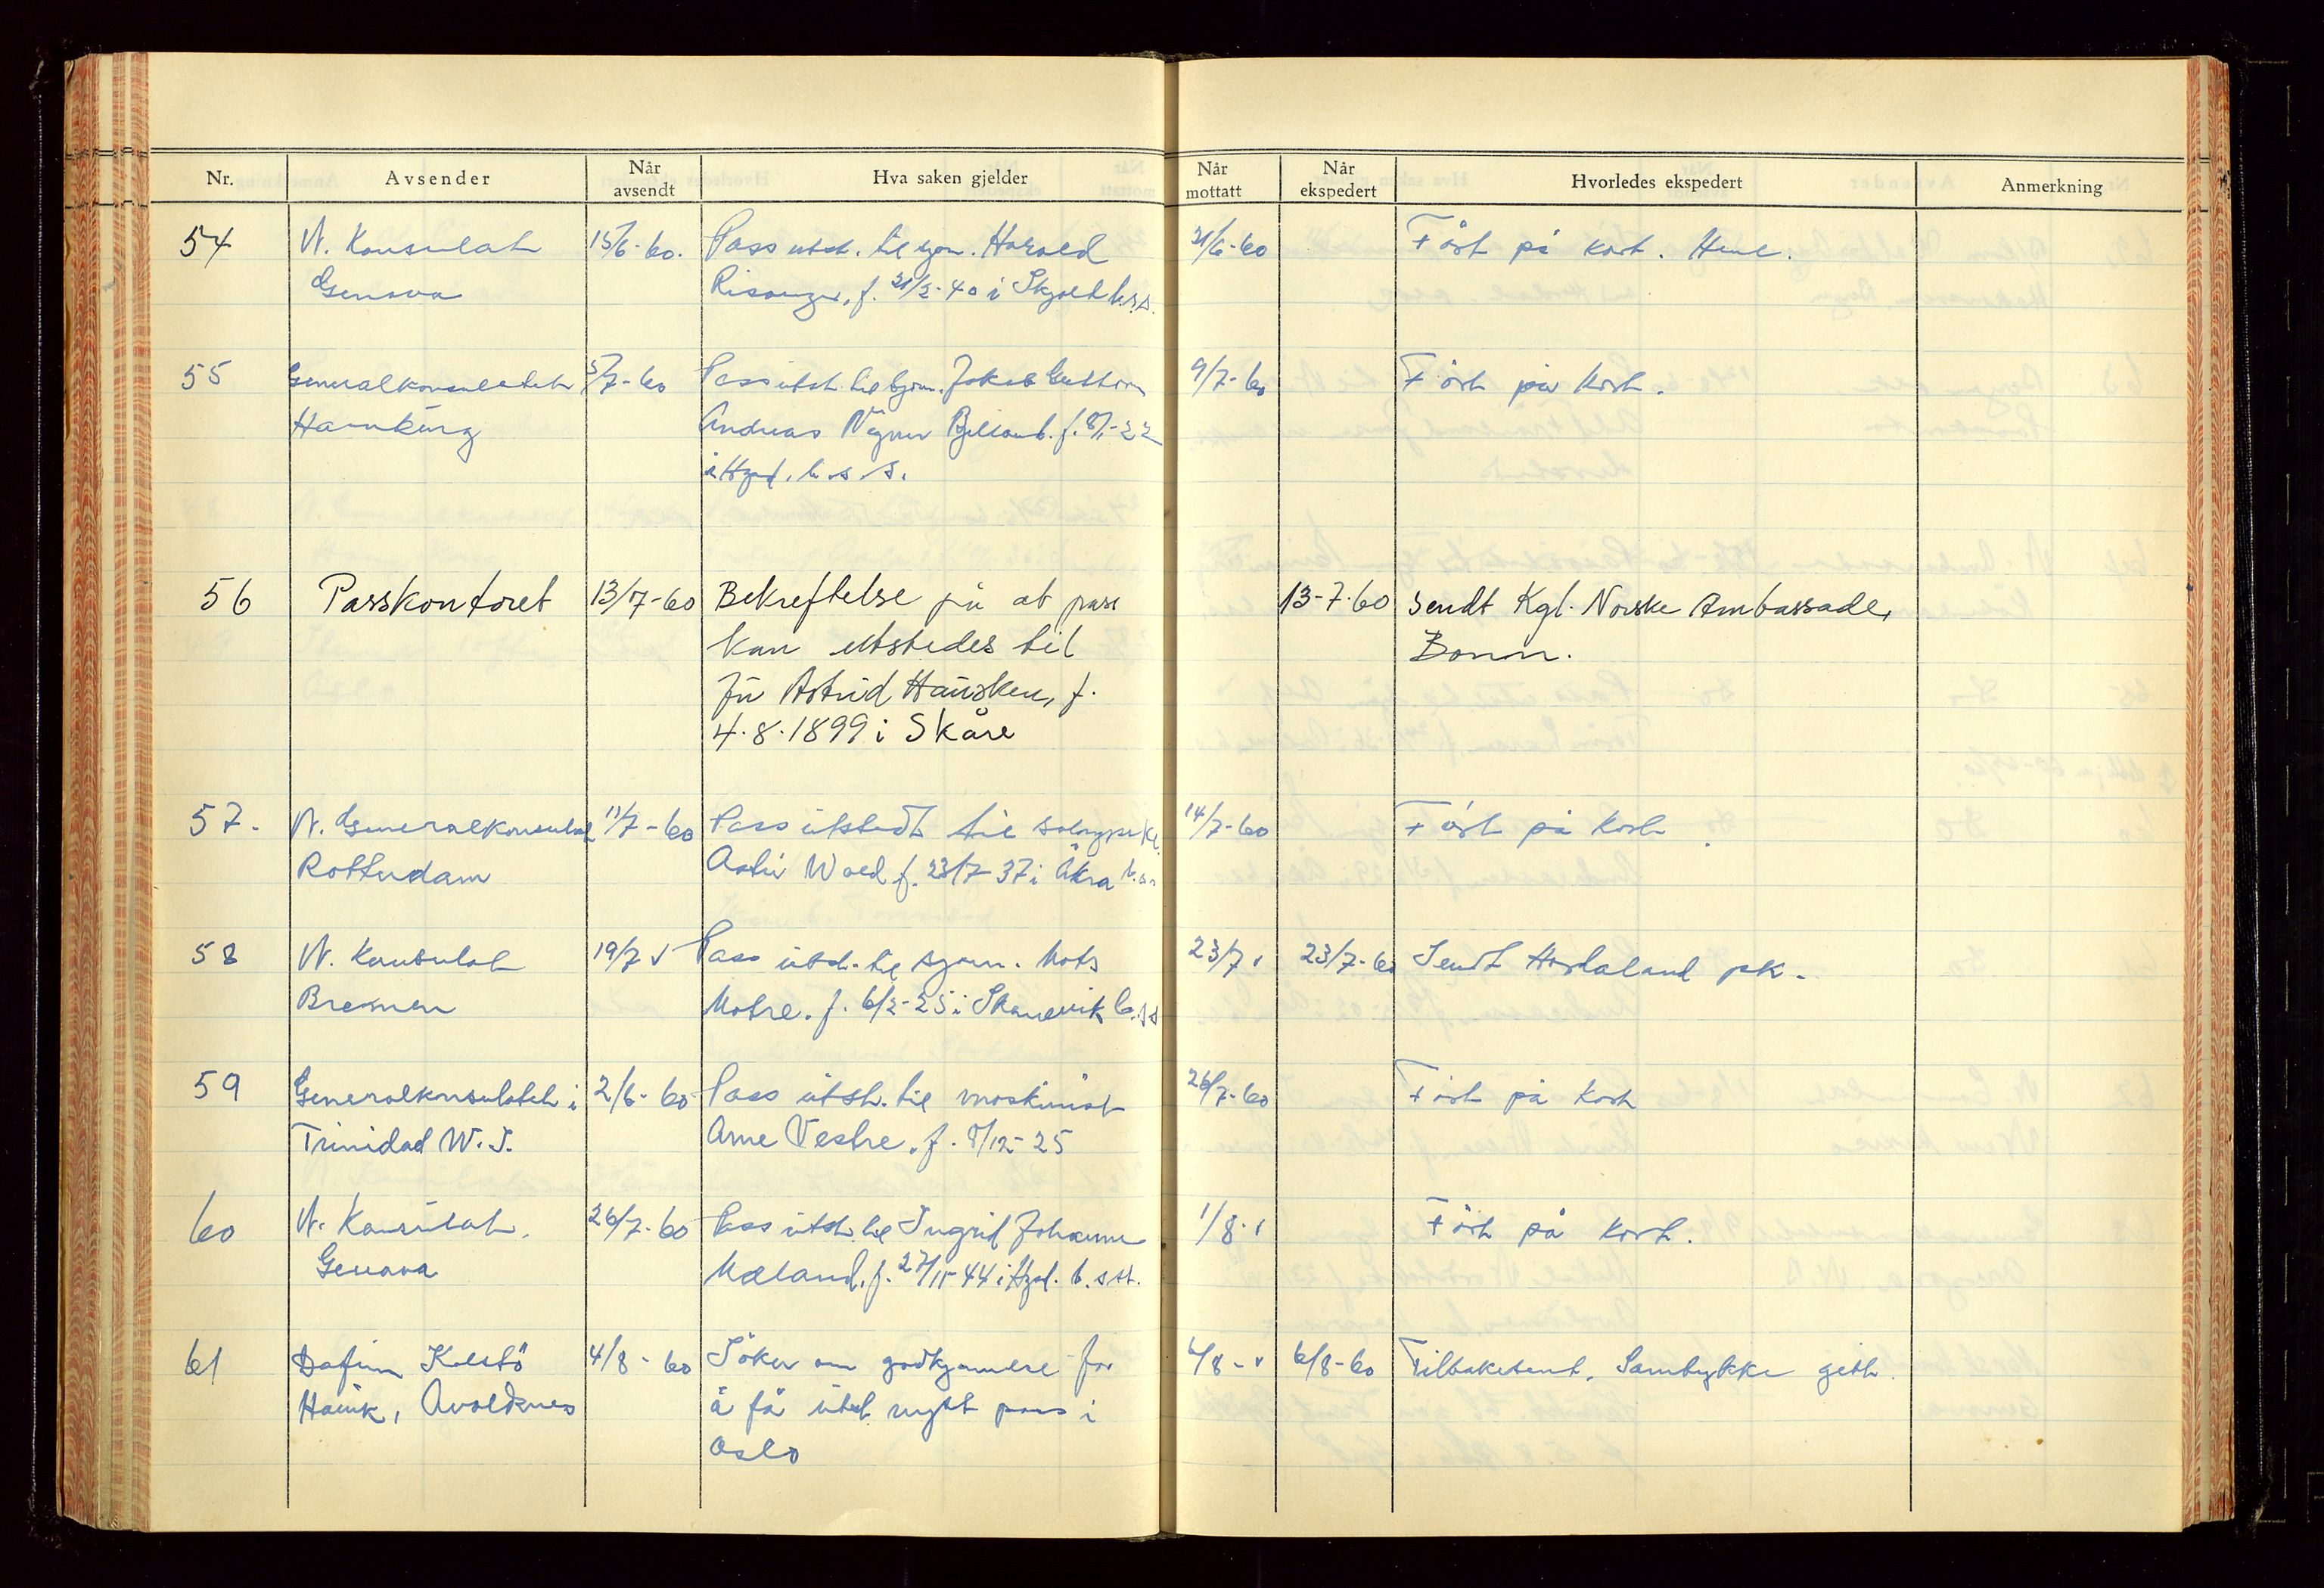 Nr. Avsender Når avsendt Hva saken gjelder Når mottatt Når ekspedert Hvorledes ekspedert Anmerkning
54 N. Konsulat 15/6-60. Pass utst. til sjm. Harald 21/6-60 Fört på kort.
Genova f. 21/2-40 i Skjold b.s.s.
55 Generalkonsulatet 5/7-60 Pass utst. til sjm. Jakob 9/7-60 Fört på kort.
Hamburg Andreas f. 8/1-22
i Hgsd. b.s.s.
56 Passkontoret 13/7-60 Bekreftelse på at pass 13-7-60 Sendt Kgl. Norske Ambassade,
kan utstedes til Bonn.
frü Astrid Haüsken, f.
4.8.1899 i Skåre
57. N. Generalkonsulat 11/7-60 Pass utstedt til 14/7-60 Fört på kort.
Rotterdam f. 23/7-37 i Åkra b.s.s
58 N. Konsulat 19/7 v Pass utst. til sjm. Mots 23/7 v 23/7-60 Sendt Hordaland pk.
Bremen Motre. f. 6/2-25 i Skånevik b.s.s
59 Generalkonsulatet i 2/6-60 Pass utst. til maskinist 26/7-60 Fört på kort
Trinidad W.I. Arne Vestre. f. 8/12-25
60 N. Konsulat. 26/7-60 Pass utst. til Ingrid Johanne 1/8-v Fört på kort.
Genova Mæland. f. 27/11-44 i Hgsd. b. s st.
61 Dafinn Kolstö 4/8-60 Söker om godkjennelse for 6/8-v 6/8-60 Tilbakesent. Samtykke gitt.
Hauik, Avaldsnes å få utst. nytt pass i
Oslo